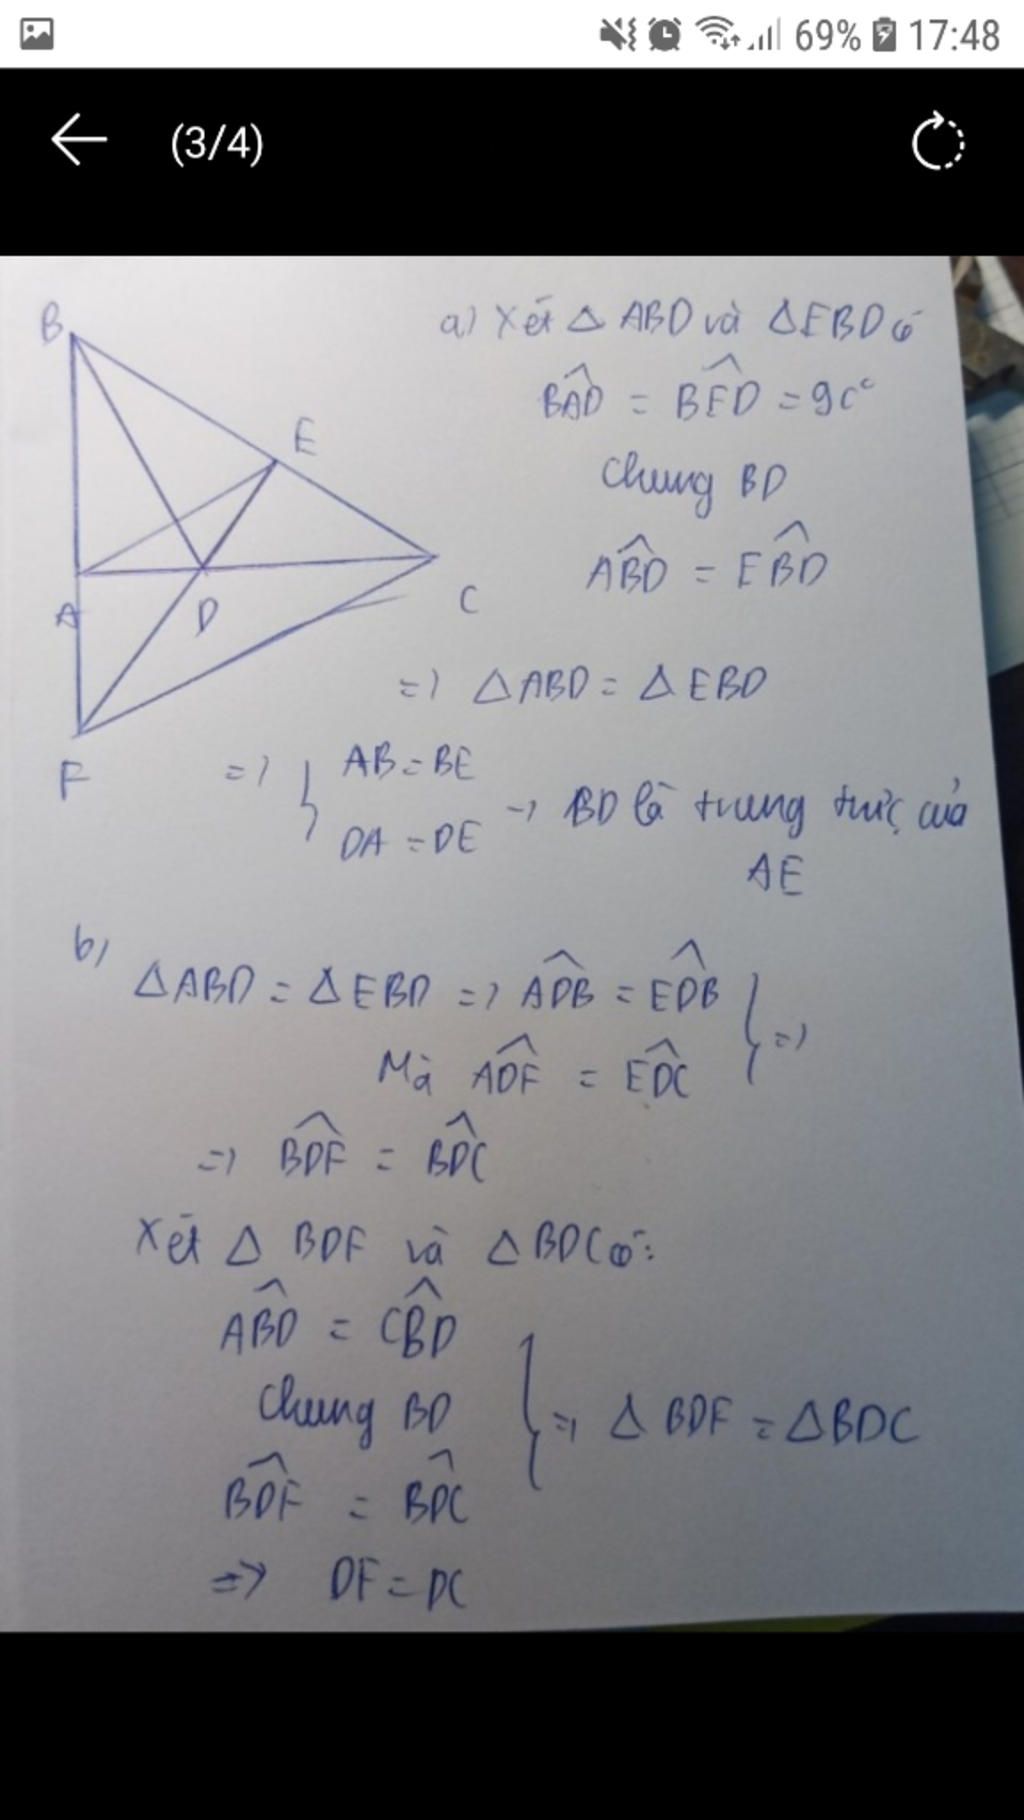 69% 17:48
(3/4)
B
E
A
D
C
F
a) Xét △ ABD và △EBD có
BAD̂ = BÊD = 90°
Chung BD
AB̂D = EB̂D
=> △ABD = △EBD
=> { AB = BE
DA = DE → BD là trung trực của
AE
b)
△ABD = △EBD => AD̂B = ED̂B
Mà AD̂F = ED̂C } =>
=> BD̂F = BD̂C
Xét △ BDF và △BDC có:
AB̂D = CB̂D
Chung BD } => △ BDF = △BDC
BD̂F = BD̂C
=> DF = DC